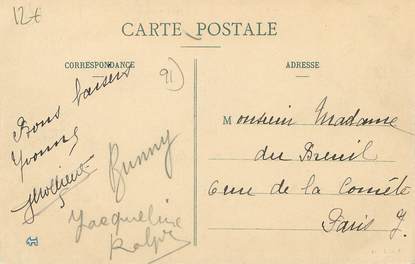 12€
CARTE POSTALE
CORRESPONDANCE
ADRESSE
91
Bons baisers
Yvonne
Bunny
Jacqueline
Ralph
Monsieur Madame
du Breuil
6 rue de la Comète
Paris 7